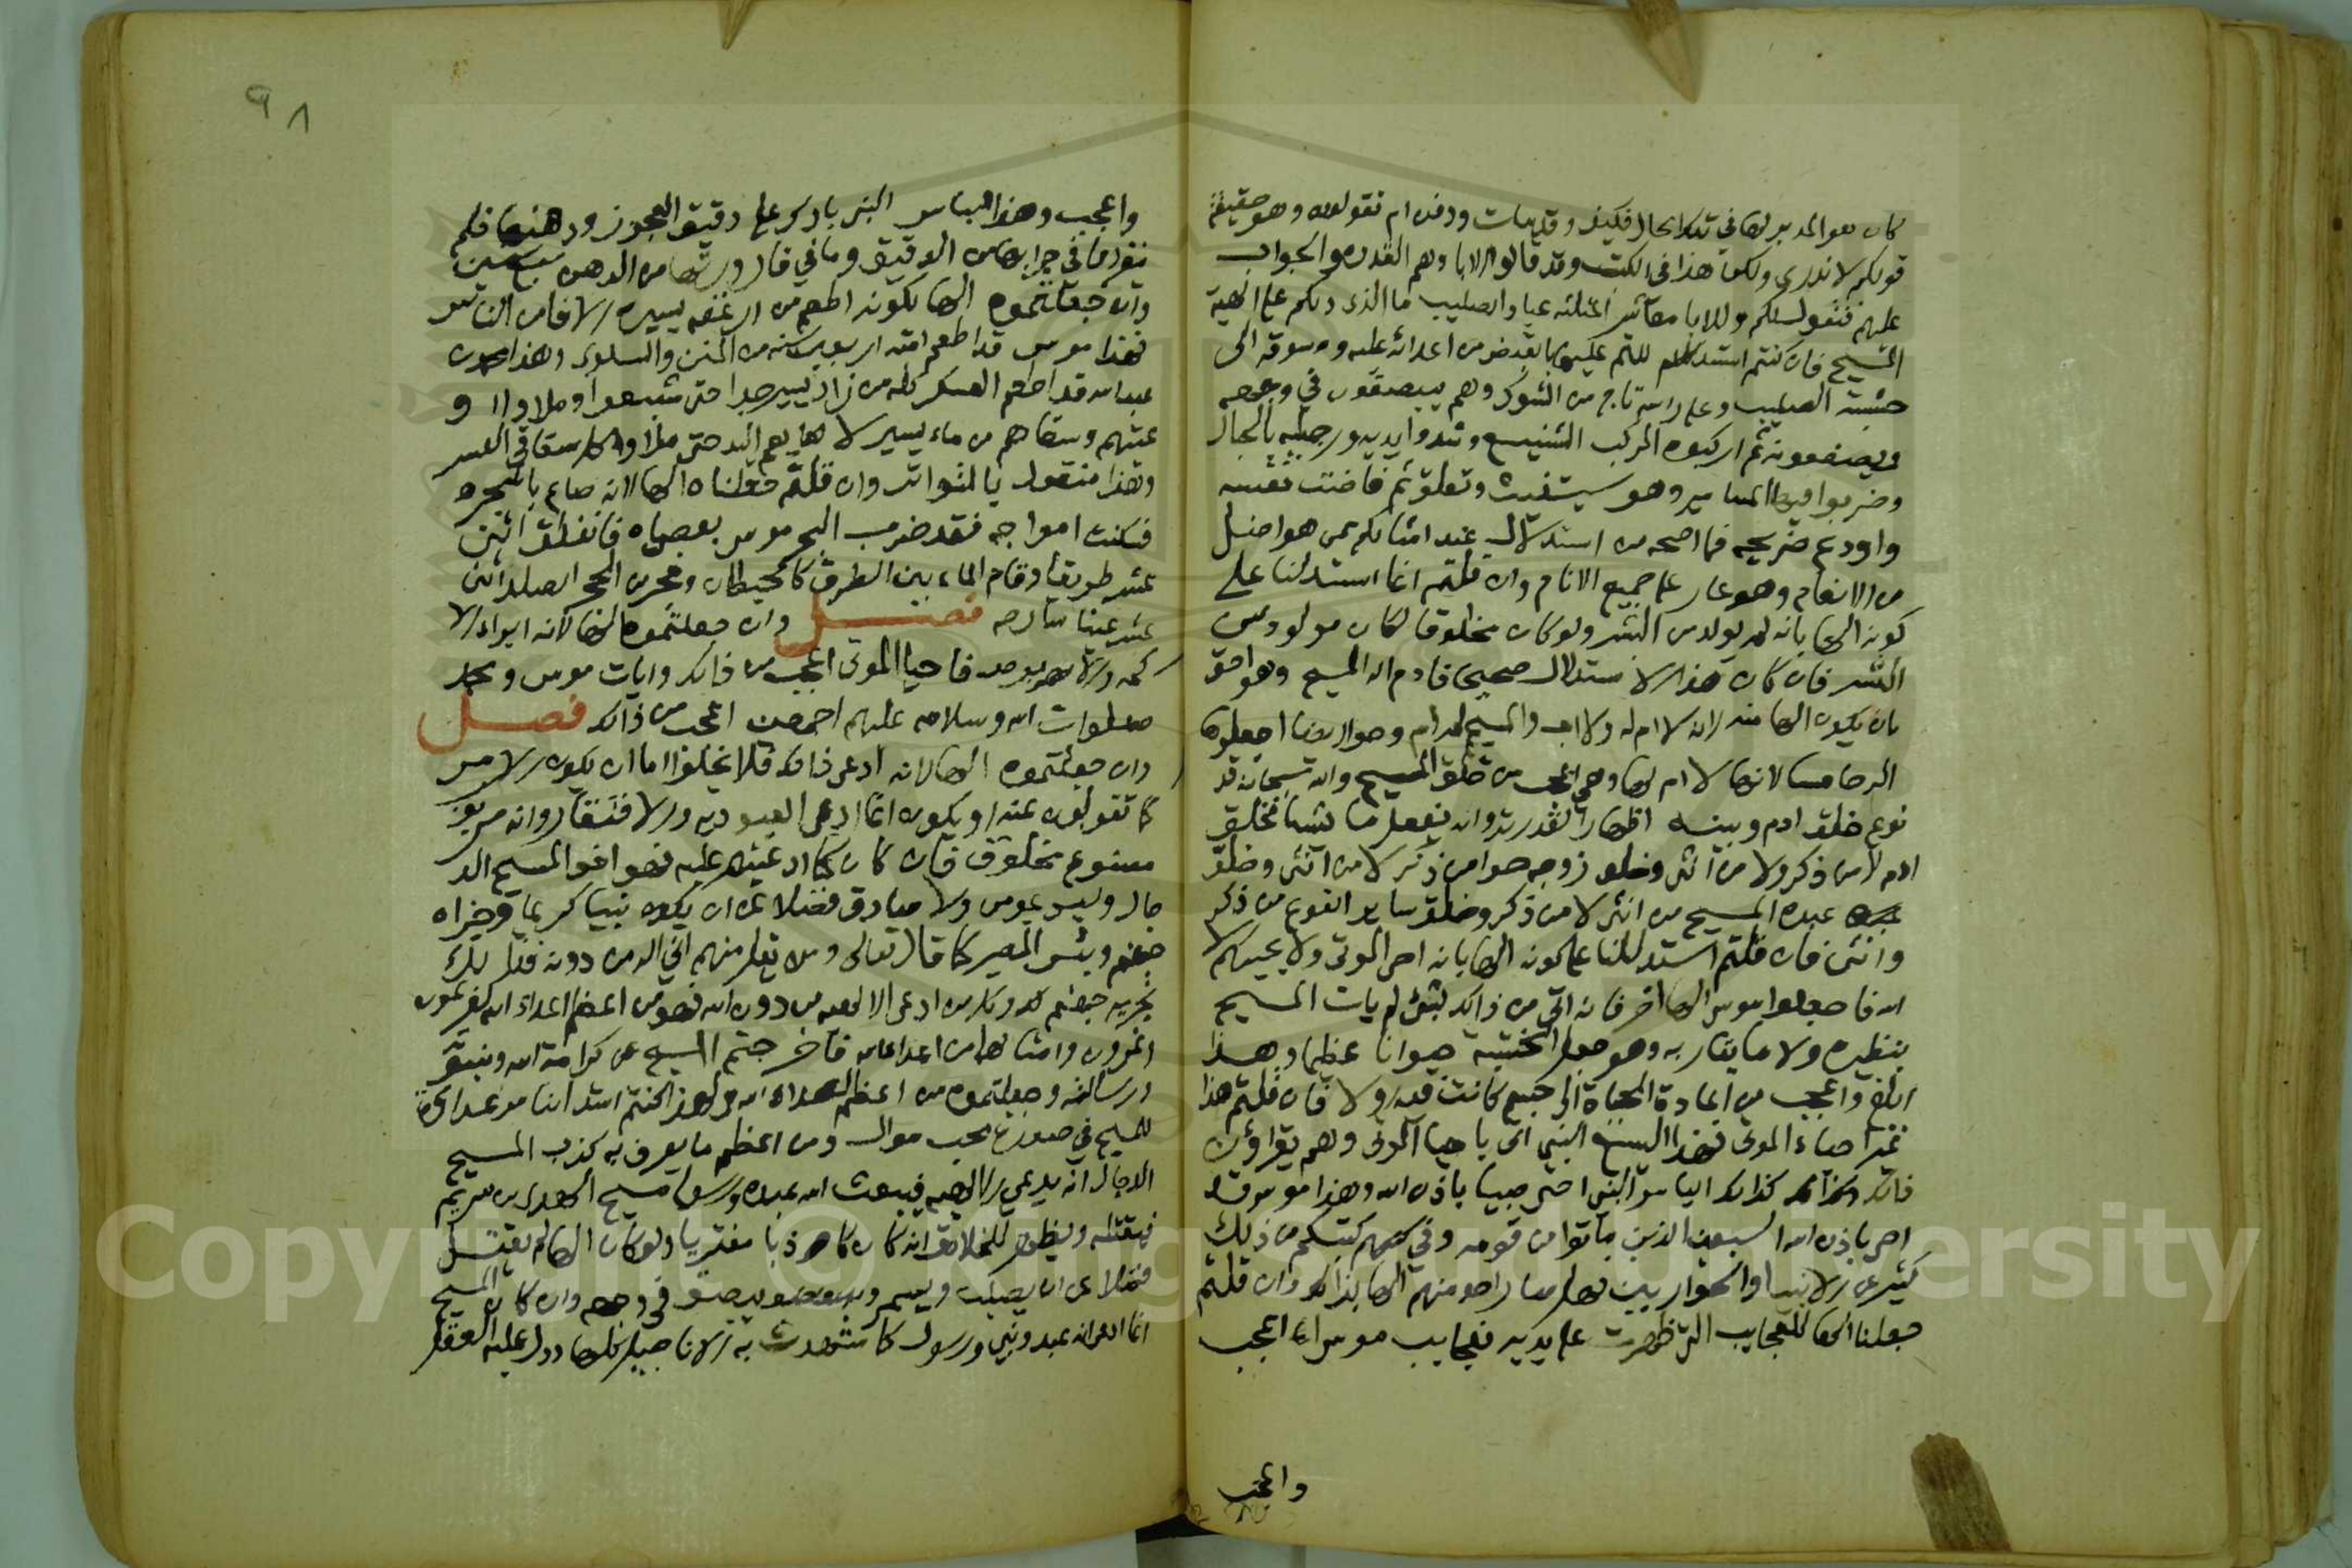 كان هو المدبر لها في تلك الحال فكيف وقد مات ودفن ام تقولون وهو حقيقة
قولكم لا ندري ولكن هذا في الكتب وقد قالوا الابا وهم القدوه والجواب
عليهم فنقول لكم وللابا معاشر المثلثه عباد الصليب ما الذي دلكم على الهية
المسيح فان كنتم استدللتم عليها بالقبض من اعدائه عليه وسوقه الى
خشبة الصليب وعلى راسه تاج من الشوك وهم يبصقون في وجهه
ويصفعونه ثم اركبوه المركب الشنيع وشدوا يديه ورجليه بالحبال
وضربوا فيها المسامير وهو يستغيث وتعلق ثم فاضت نفسه
واودع ضريحه فما اصحه من استدلال عند امثالكم ممن هو اضل
من الانعام وهو عار على جميع الانام وان قلتم انما استدلنا على
كونه الها بانه لم يولد من البشر ولو كان مخلوقا لكان مولود من
البشر فان كان هذا الاستدلال صحيحا فادم اله المسيح وهو احق
بان يكون الها منه لانه لا ام له ولا اب والمسيح له ام وحوا ايضا اجعلوها
الها خامسا لانها لا ام لها وهي اعجب من خلق المسيح والله سبحانه قد
نوع خلق ادم وبنيه اظهارا لقدرته وانه يفعل ما يشا فخلق
ادم لا من ذكر ولا من انثى وخلق زوجه حوا من ذكر لا من انثى وخلق
عبده المسيح من انثى لا من ذكر وخلق ساير النوع من ذكر
وانثى فان قلتم استدللنا على كونه الها بانه احي الموتى ولا يحييهم الا
الله فاجعلوا موسى الها اخر فانه اتى من ذالك بشئ لم يات المسيح
بنظيره ولا ما يقاربه وهو جعل الخشبة حيوانا عظيما وهذا
ابلغ واعجب من اعادة الحياة الى جسم كانت فيه اولا فان قلتم هذا
غير احياء الموتى فهذا اليسع النبي اتى باحيا الموتى وهم يقرؤن
ذالك كذالك الياس النبي احي صبيا باذن الله وهذا موسى قد
احي باذن الله السبعين الذين ماتوا من قومه وفي كتبكم من ذلك
كثير عن الانبيا والحواريين فهل صار احد منهم الها بذالك وان قلتم
جعلنا الها للعجايب التي ظهرت على يديه فعجايب موسى اعجب
واعجب
٩٨
واعجب وهذا الياس النبي بارك على دقيق العجوز ودهنها فلم
ينفد ما في جرابها من الدقيق وما في قارورتها من الدهن سبع سنين
وان جعلتموه الها لكونه اطعم من ارغفه يسيره الافا من الناس
فهذا موسى قد اطعم امته اربعين سنه من المن والسلوى وهذا محمد بن
عبدالله قد اطعم العسكر كله من زاد يسير جدا حتى شبعوا وملاوا او
عيتهم وسقاهم من ماء يسير لا يعم اليد حتى ملاوا كل سقا في العسكر
وهذا منقول بالتواتر وان قلتم جعلناه الها لانه صاح بالبحر
فسكنت امواجه فقد ضرب البحر موسى بعصاه فانفلق اثني
عشر طريقا وقام الماء بين الطرق كالحيطان وفجر من الحجر الصلد اثني
عشر عينا سارحه فصل وان جعلتموه الها لانه ابراء الا
كمه والابرص فاحيا الموتى اعجب من ذالك وايات موسى ومحمد
صلوات الله وسلامه عليهم اجمعين اعجب من ذالك فصل
وان جعلتموه الها لانه ادعى ذالك فلا يخلوا اما ان يكون الامر
كما تقولون عنه او يكون انما ادعى العبوديه والافتقار وانه مربوب
مصنوع مخلوق فان كان كما ادعيتم عليه فهو اخو المسيح الد
جال وليس بمومن ولا صادق فضلا عن ان يكون نبيا كريما وجزاه
جهنم وبئس المصير كما قال تعالى ومن يقل منهم اني اله من دونه فذلك
نجزيه جهنم وكل من ادعى الالهيه من دون الله فهو من اعظم اعداء الله كفرعون
ونمرود وامثالهما من اعداء الله فاخرجتم المسيح عن كرامة الله ونبوته
ورسالته وجعلتموه من اعظم اعداء الله ولهذا كنتم اشد الناس عداوة
للمسيح في صورة محب موال ومن اعظم ما يعرف به كذب المسيح
الدجال انه يدعي الالهيه فيبعث الله عبده ورسوله مسيح الهدى بن مريم
فيقتله ويظهر للخلائق انه كان كاذبا مفتريا ولو كان الها لم يقتل
فضلا عن ان يصلب ويسمر ويبصق في وجهه وان كان المسيح
انما ادعى انه عبد ونبي ورسول كما شهدت به الاناجيل كلها ودل عليه العقل
Copyright © King Saud University